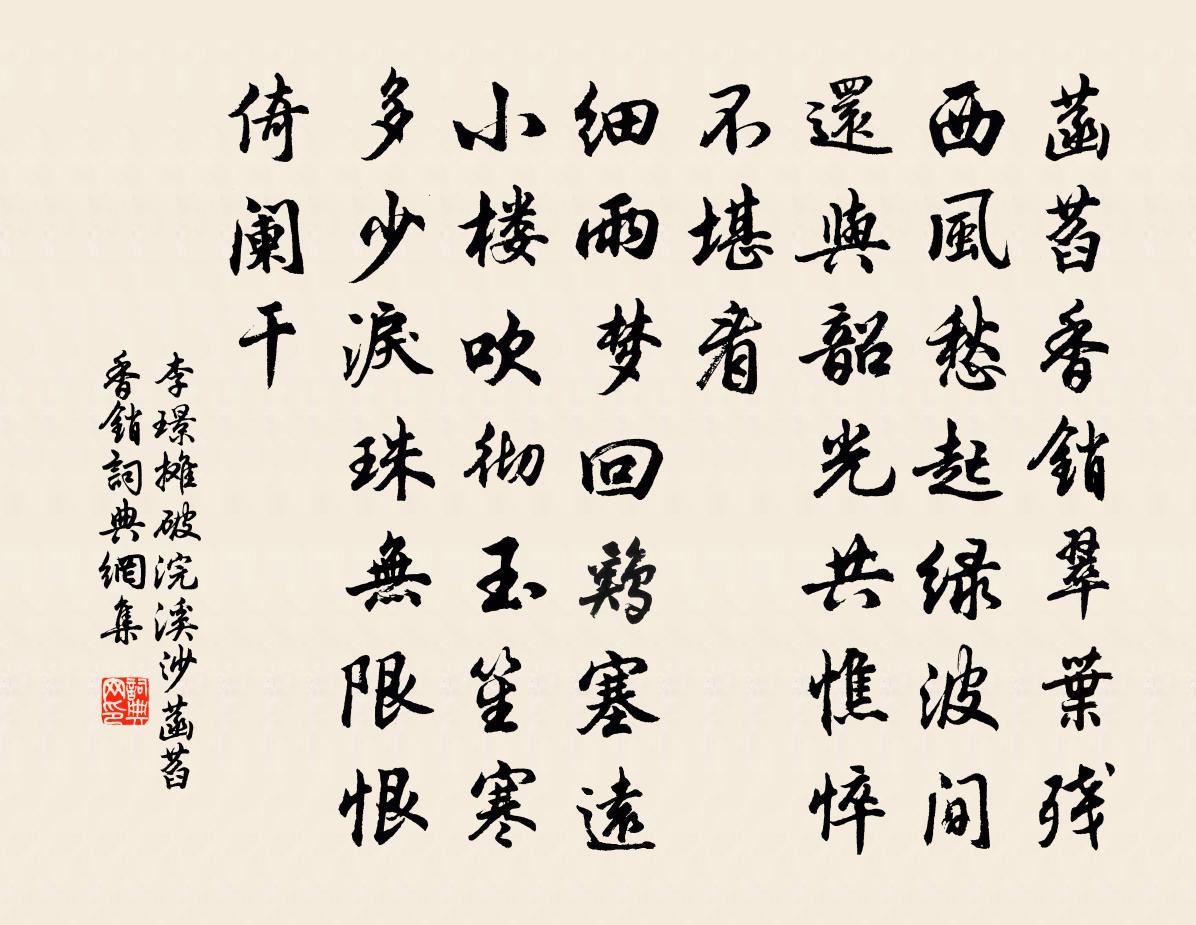 菡萏香銷翠葉残
西風愁起緑波間
還與韶光共憔悴
不堪看
细雨梦回鶏塞遠
小楼吹彻玉笙寒
多少淚珠無限恨
倚阑干
李璟摊破浣溪沙菡萏
香銷詞典網集
詞典网印